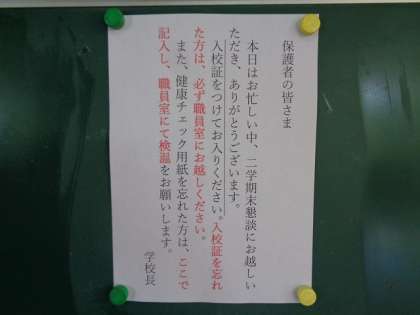 保護者の皆さま
本日はお忙しい中、二学期末懇談にお越しい
ただき、ありがとうございます。
入校証をつけてお入りください。入校証を忘れ
た方は、必ず職員室にお越しください。
また、健康チェック用紙を忘れた方は、ここで
記入し、職員室にて検温をお願いします。
学校長